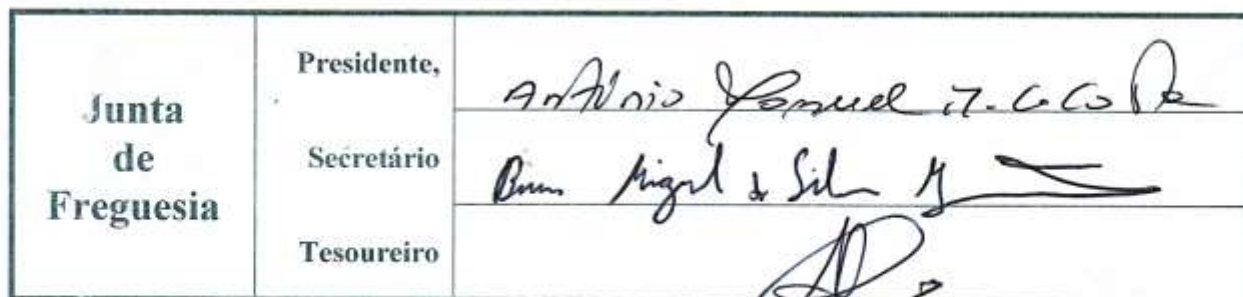 Junta
de
Freguesia
Presidente,
António Manuel
Secretário
Bruno Miguel da Silva
Tesoureiro